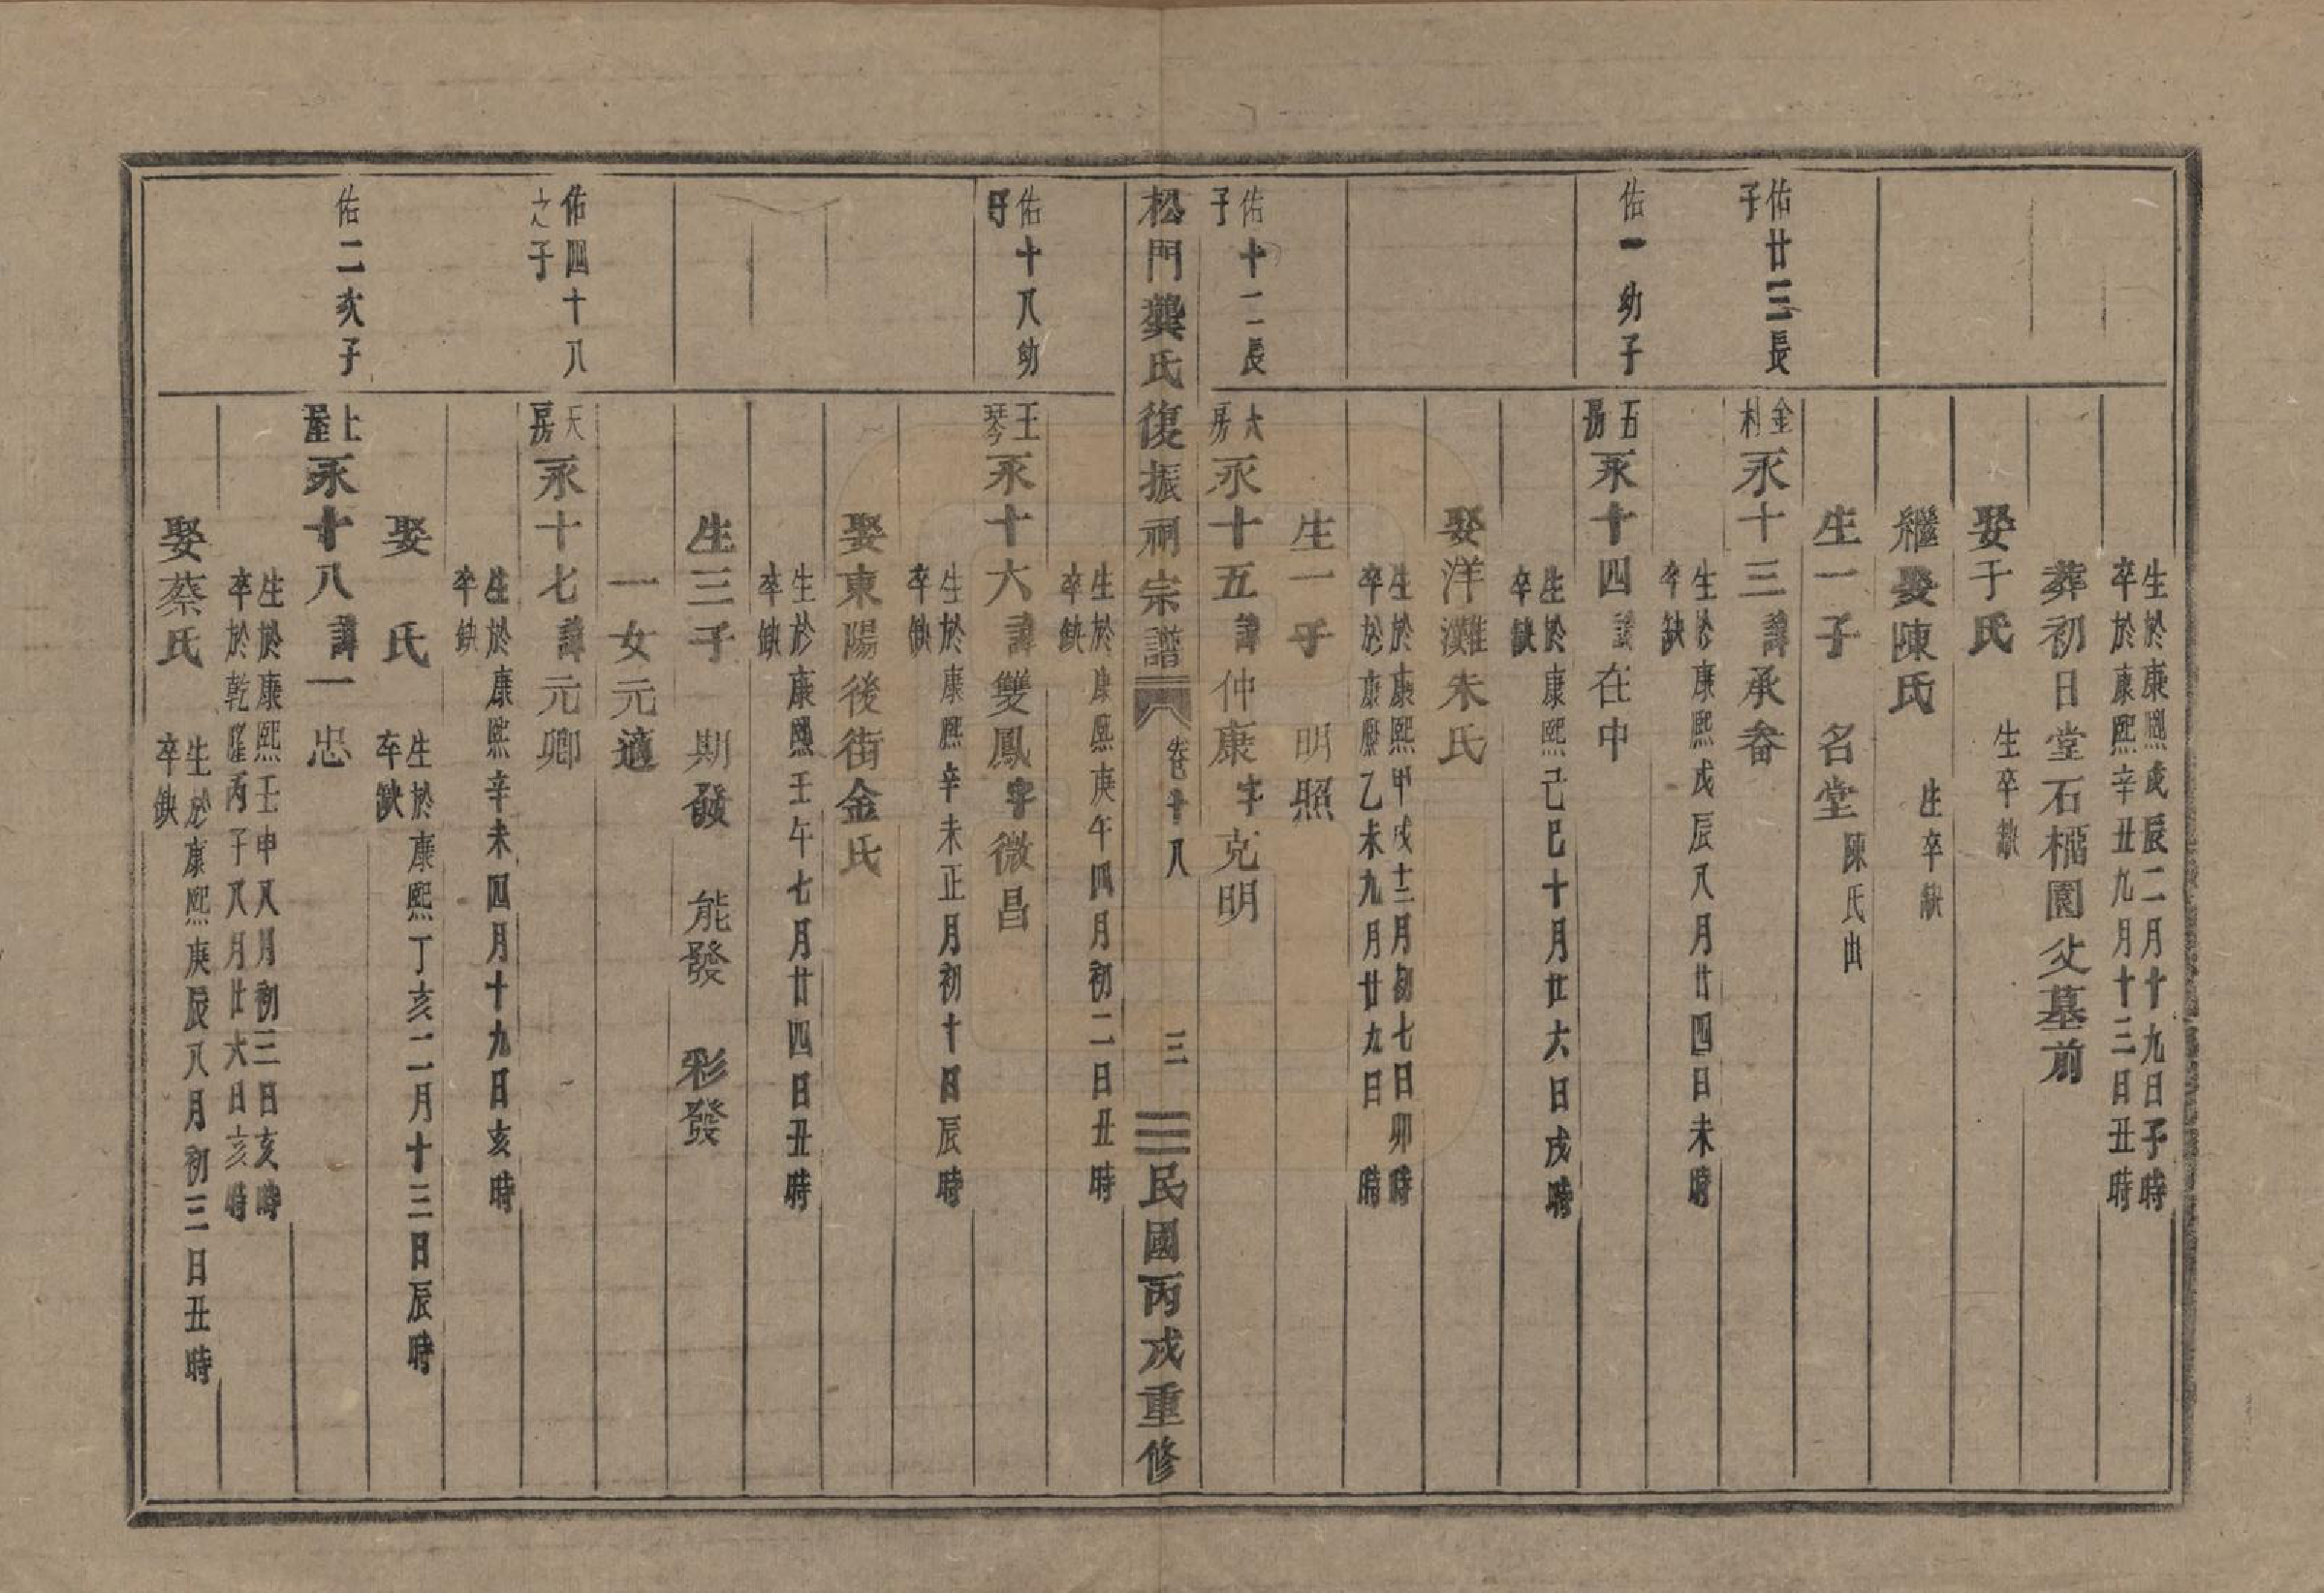 生於康熙戌辰二月十九日子時
卒於康熙辛丑九月十三日丑時
葬初日堂石橘園父墓前
娶于氏 生卒缺
繼娶陳氏 生卒缺
生一子 名堂 陳氏出
佑廿三長子
金村永十三諱承畨
生於康熙戊辰八月廿四日未時
卒缺
佑一幼子
五房永十四諱在中
生於康熙己巳十月廿六日戌時
卒缺
娶洋灘朱氏
生於康熙甲戌十二月初七日卯時
卒於康熙乙未九月廿九日 時
生一子 明照
佑十二長子
六房永十五諱仲康字克明
松門龔氏復振祠宗譜 卷十八 三 民國丙戌重修
生於康熙庚午四月初二日丑時
卒缺
佑十八幼子
王琴永十六諱雙鳳字微昌
生於康熙辛未正月初十日辰時
卒缺
娶東陽後街金氏
生於康熙壬午七月廿四日丑時
卒缺
生三子 期發 能發 彩發
一女元適
佑四十八之子
天房永十七諱元卿
生於康熙辛未四月十九日亥時
卒缺
娶 氏 生於康熙丁亥二月十三日辰時
卒缺
佑二次子
上屋永十八諱一忠
生於康熙壬申八月初三日亥時
卒於乾隆丙子八月廿六日亥時
娶蔡氏 生於康熙庚辰八月初三日丑時
卒缺